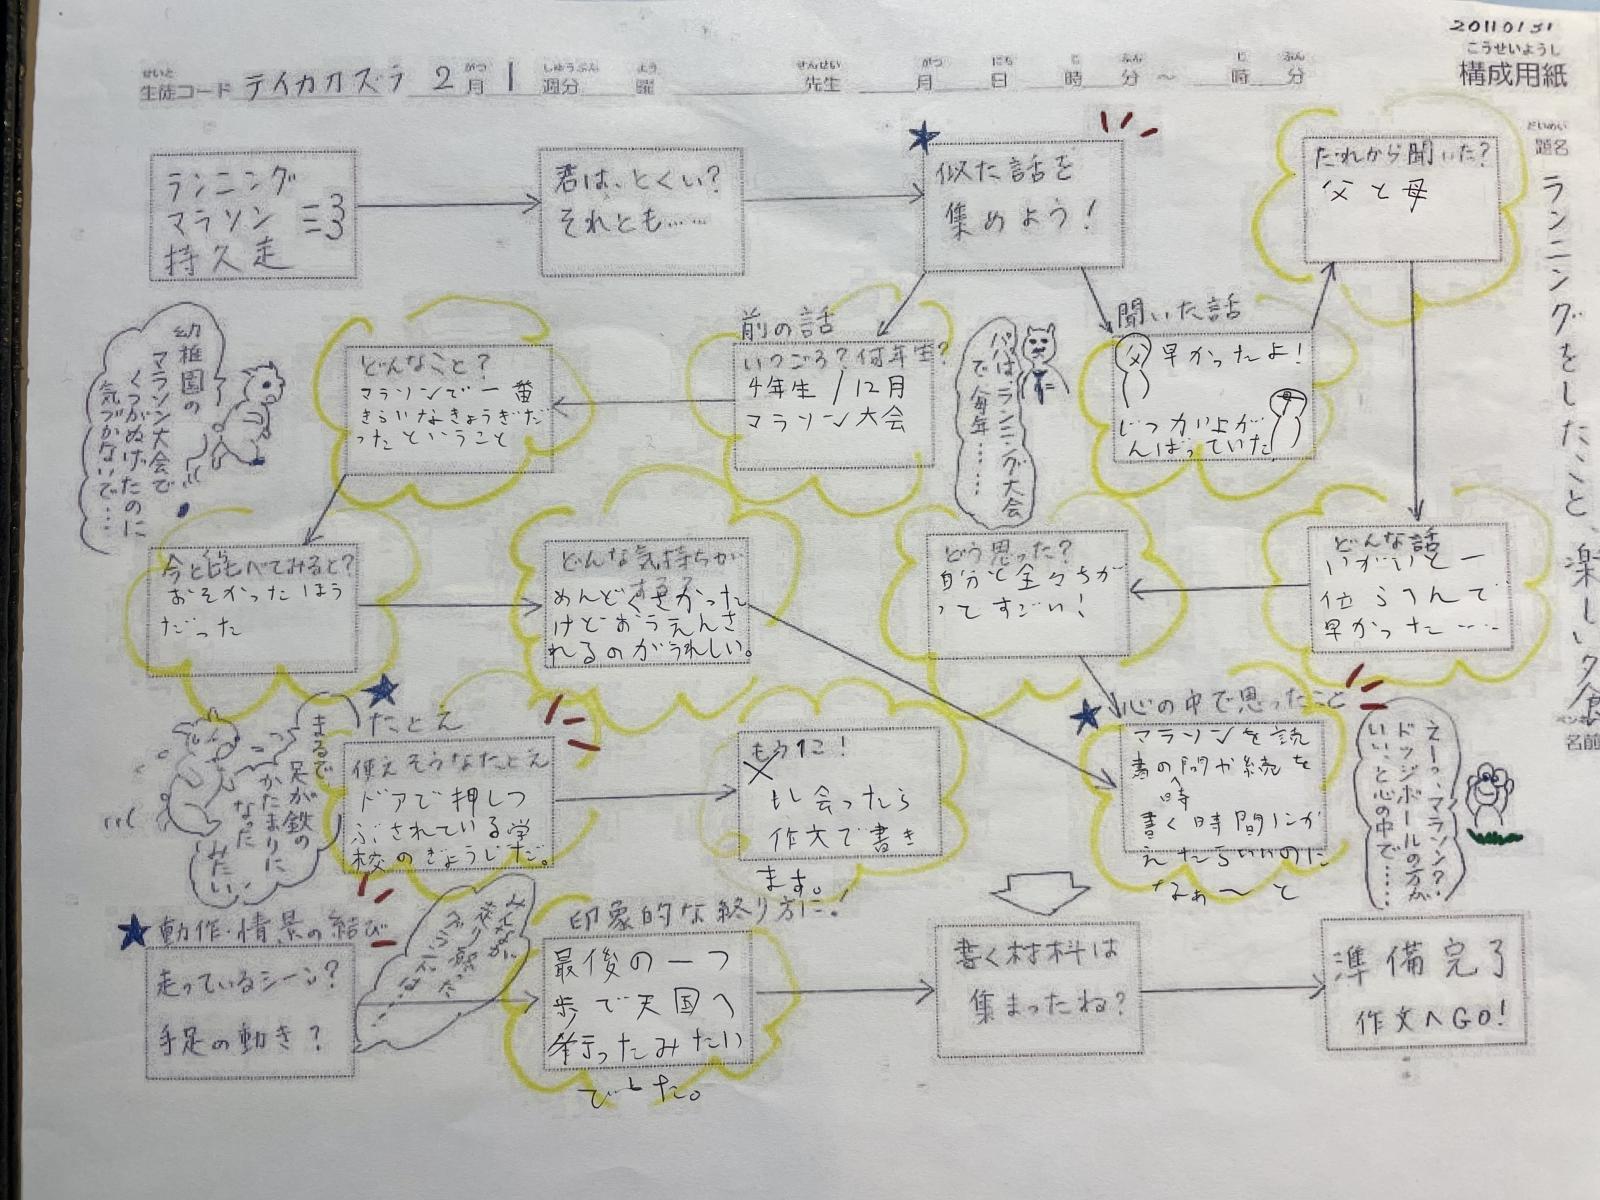 20110131
こうせいようし
構成用紙
せいと
生徒コード テイカカズラ 2月 1週分 曜 先生 月 日 時 分 ～ 時 分
がつ しゅうぶん よう せんせい がつ にち じ ふん じ ふん
だいめい
題名
ランニングをしたこと、楽しい夕食
名前
ランニング
マラソン
持久走
君は、とくい?
それとも……
似た話を
集めよう!
だれから聞いた?
父と母
幼稚園の
マラソン大会で
くつがぬげたのに
気づかないで…
どんなこと?
マラソンで一番
きらいなきょうぎだ
ったということ
前の話
いつごろ?何年生?
4年生/12月
マラソン大会
パパはランニング大会
で毎年……
聞いた話
父
早かったよ!
じつかいよが
んばっていた
今と比べてみると?
おそかったほう
だった
どんな気持ちが
する?
めんどくさかった
けどおうえんさ
れるのがうれしい。
どう思った?
自分と全々ちが
ってすごい!
どんな話
いがいと一
位らへんで
早かった……
まるで
足が鉄の
かたまりに
なった
みたい
たとえ
使えそうなたとえ
ドアで押しつ
ぶされている学
校のぎょうじだ。
もう1こ!
出会ったら
作文で書き
ます。
心の中で思ったこと
マラソンを読
書の時間や続を
書く時間にか
えたらいいのに
なぁ～と
えーっ、マラソン?
ドッジボールの方が
いい、と心の中で……
動作・情景の結び
走っているシーン?
手足の動き?
印象的な終り方に!
最後の一つ
歩で天国へ
行ったみたい
でした。
書く材料は
集まったね?
準備完了
作文へGO!